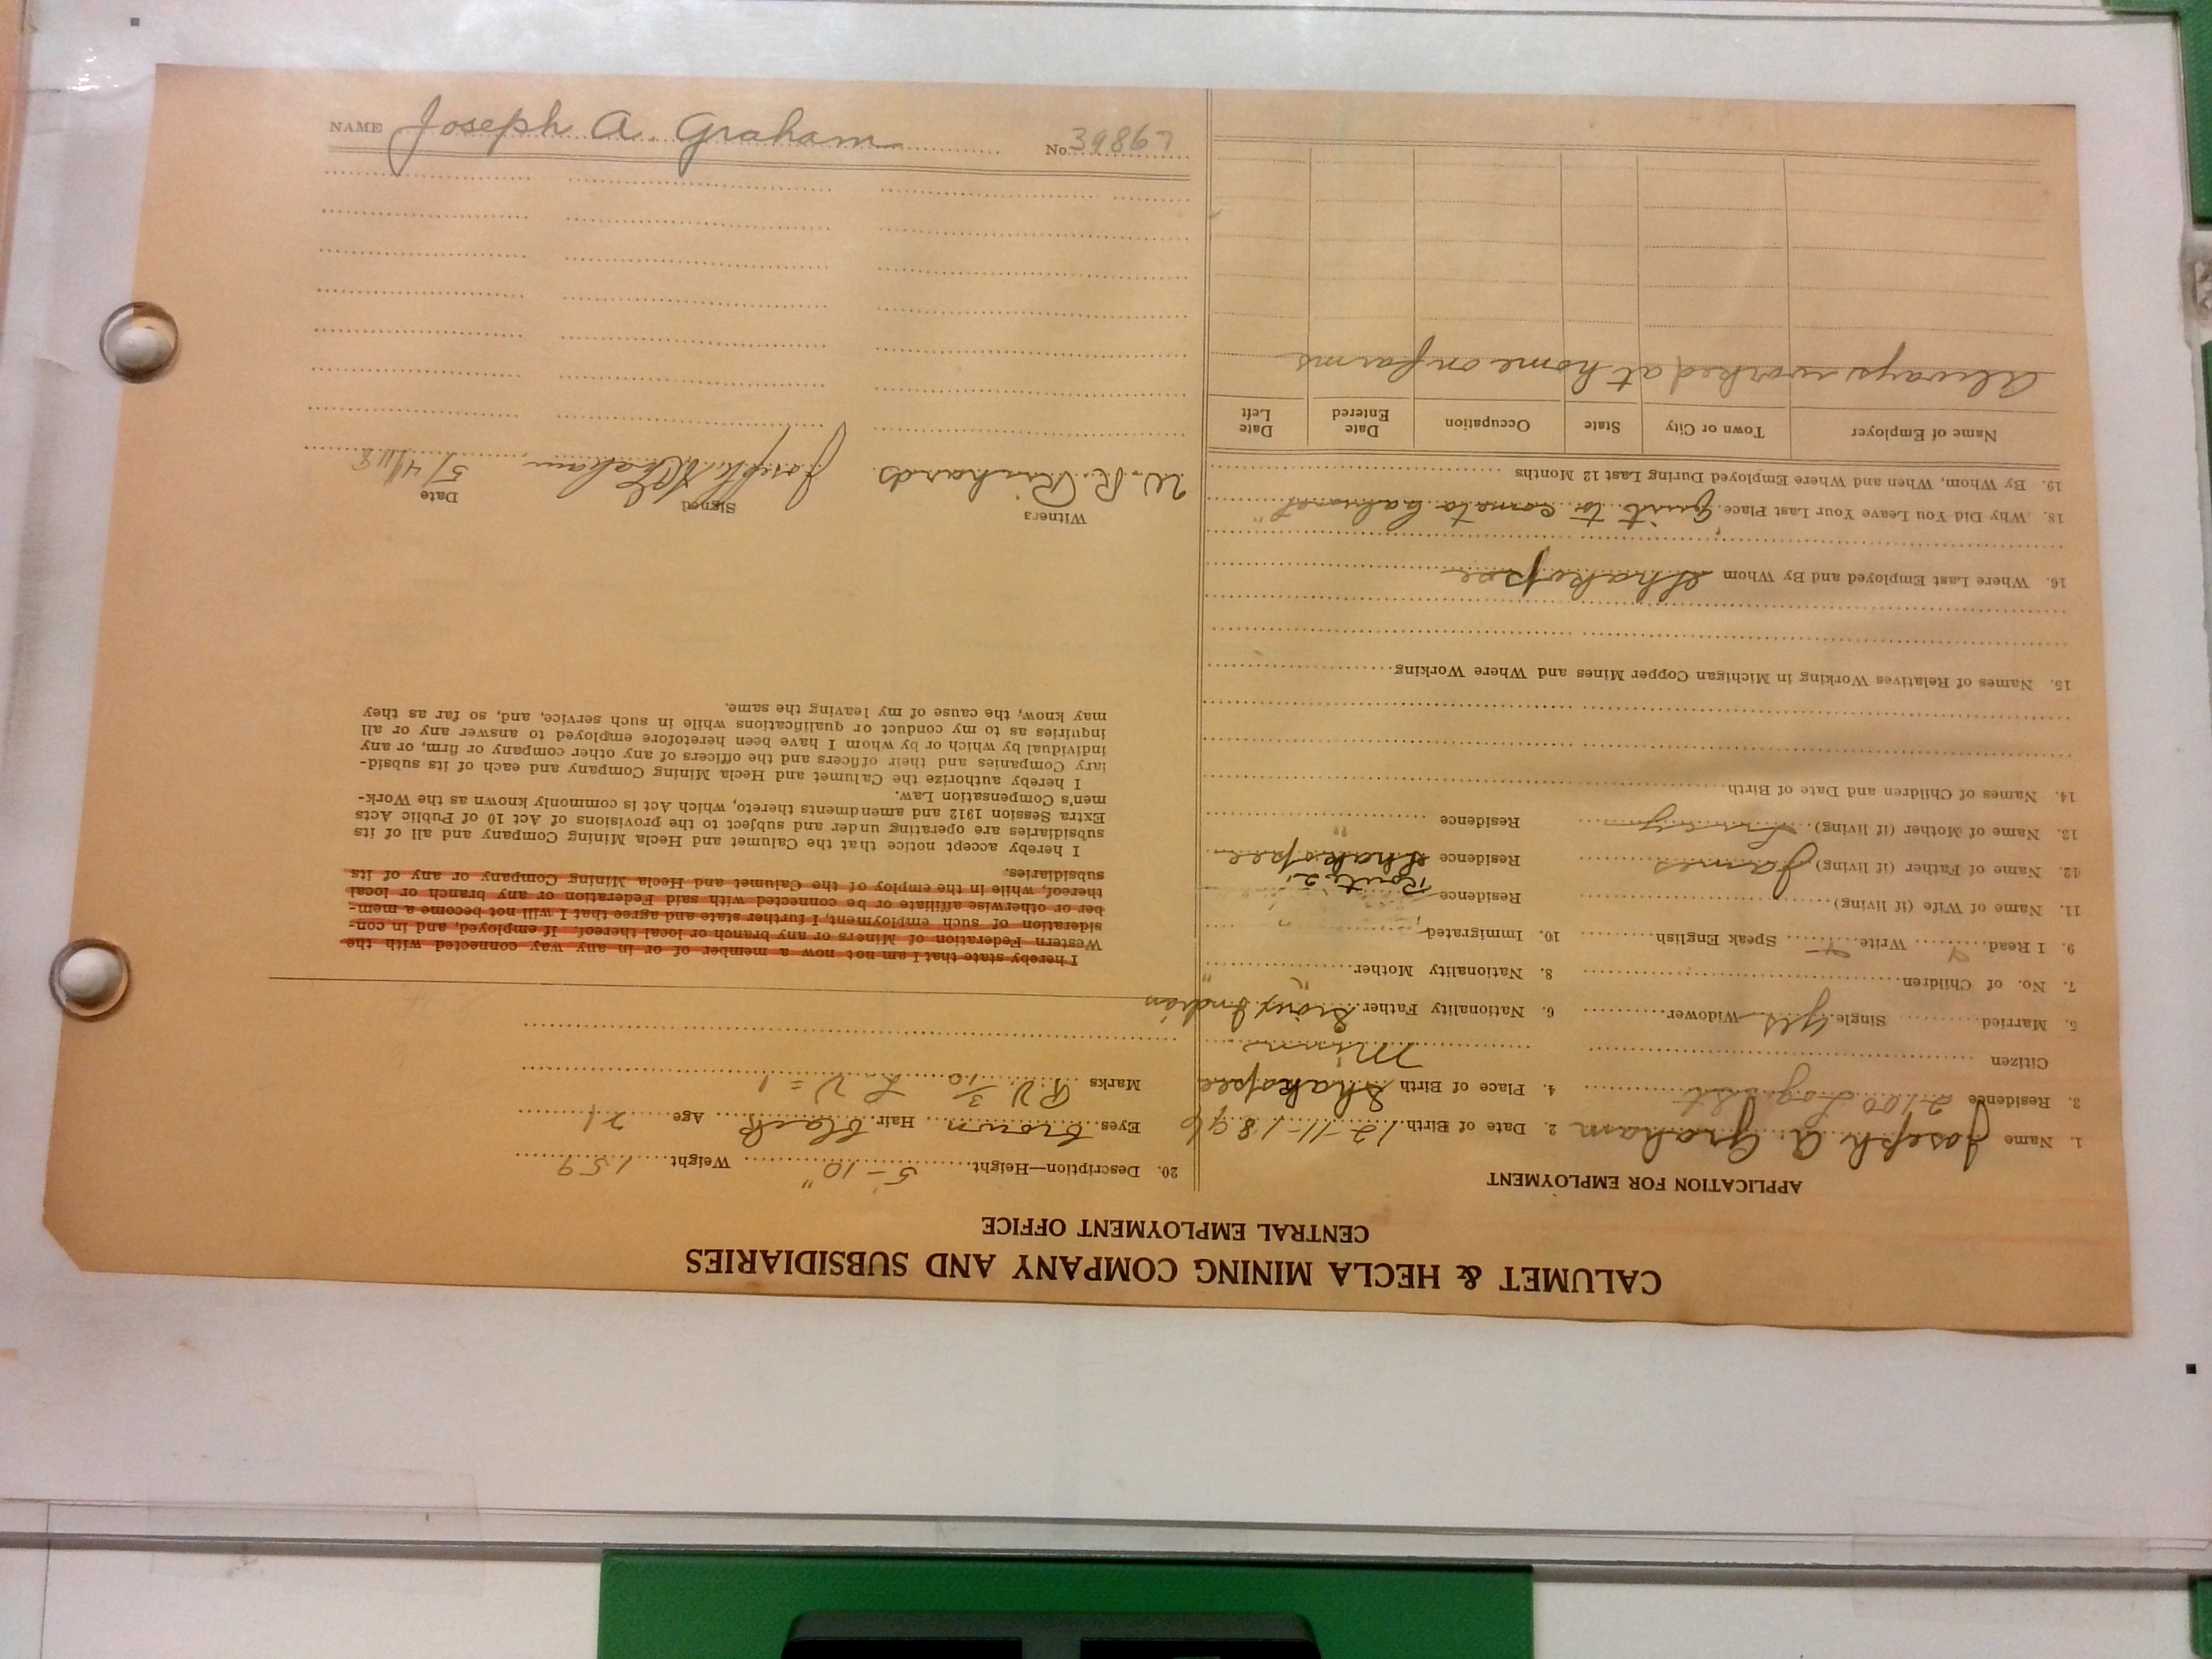 CALUMET & HECLA MINING COMPANY AND SUBSIDIARIES
CENTRAL EMPLOYMENT OFFICE
APPLICATION FOR EMPLOYMENT
1. Name Joseph A. Graham 2. Date of Birth 12-11-1896
3. Residence 2100 Log St. 4. Place of Birth Shakopee
Citizen Minn
5. Married Single Yes Widower 6. Nationality Father Sioux Indian
7. No. of Children 8. Nationality Mother " "
9. I Read Y Write Y Speak English 10. Immigrated
11. Name of Wife (if living) Residence Route 2,
12. Name of Father (if living) James Residence Shakopee
13. Name of Mother (if living) Lucy Residence "
14. Names of Children and Date of Birth
15. Names of Relatives Working in Michigan Copper Mines and Where Working
16. Where Last Employed and By Whom Shakopee
18. Why Did You Leave Your Last Place Quit to come to Calumet
19. By Whom, When and Where Employed During Last 12 Months
Name of Employer Town or City State Occupation Date Entered Date Left
Always worked at home on farms
20. Description—Height 5-10" Weight 159
Eyes brown Hair black Age 21
Marks RV 3/10 LV = 1
I hereby state that I am not now a member of or in any way connected with the
Western Federation of Miners or any branch or local thereof. If employed, and in con-
sideration of such employment, I further state and agree that I will not become a mem-
ber or otherwise affiliate or be connected with said Federation or any branch or local
thereof, while in the employ of the Calumet and Hecla Mining Company or any of its
subsidiaries.
I hereby accept notice that the Calumet and Hecla Mining Company and all of its
subsidiaries are operating under and subject to the provisions of Act 10 of Public Acts
Extra Session 1912 and amendments thereto, which Act is commonly known as the Work-
men's Compensation Law.
I hereby authorize the Calumet and Hecla Mining Company and each of its subsid-
iary Companies and their officers and the officers of any other company or firm, or any
individual by which or by whom I have been heretofore employed to answer any or all
inquiries as to my conduct or qualifications while in such service, and, so far as they
may know, the cause of my leaving the same.
Witness Signed Date
W. R. Richards Joseph A Graham 5/4/18
NAME Joseph A. Graham No. 39867